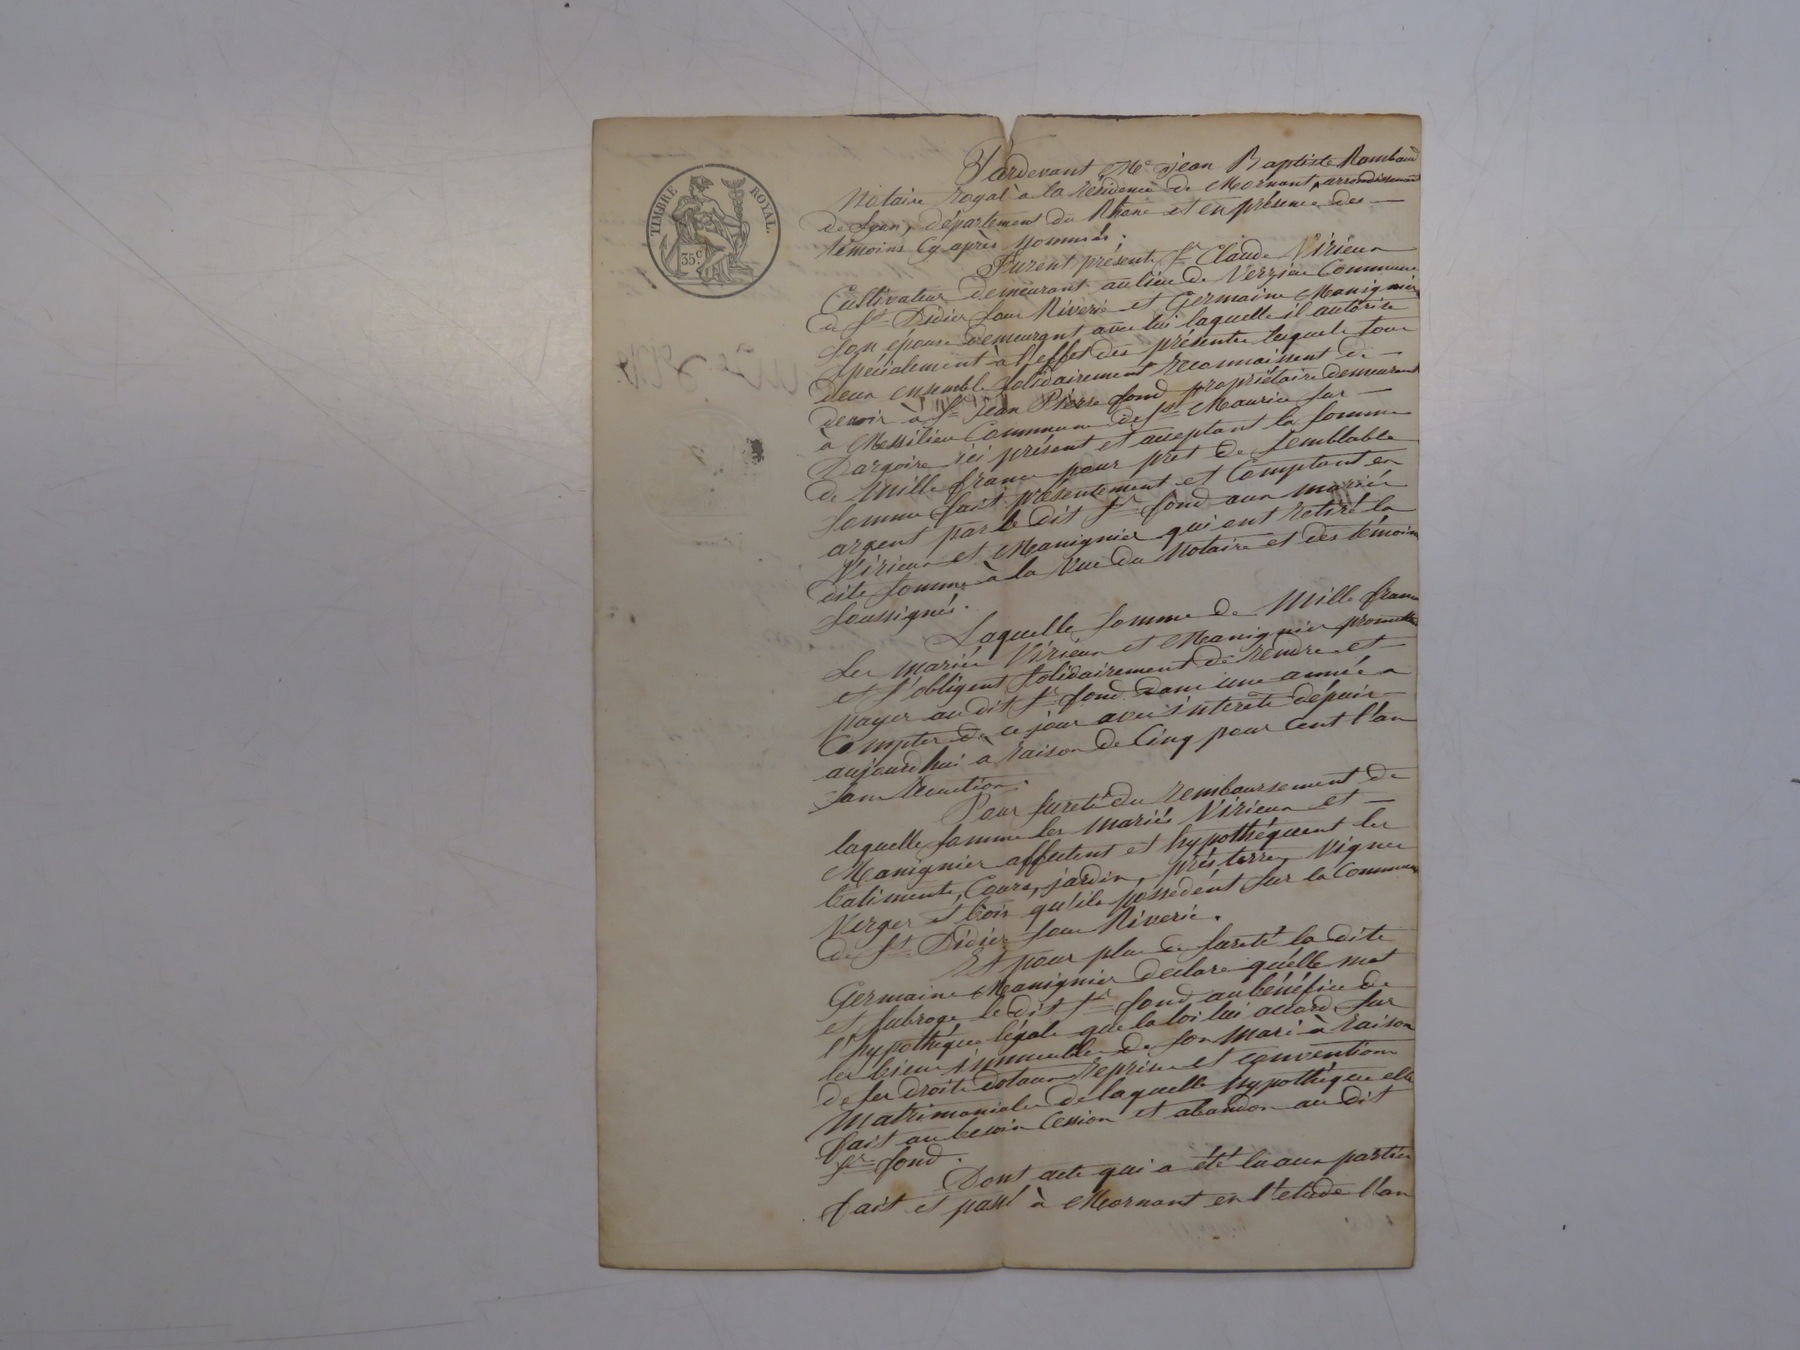 TIMBRE ROYAL.
35c
Pardevant Me Jean Baptiste Rambaud
Notaire royal à la résidence de Mornant, arrondissement
de Lyon, département du Rhône et en présence des
témoins cy après nommés.
Furent présents Sr Claude Virieux
Cultivateur demeurant au lieu de Verzieu Commune
de St Didier sous Riverie et Germaine Manignier
son epouse demeurant avec lui laquelle il autorise
spécialement à l'effet des présentes lesquels tous
deux ensemble solidairement reconnaissent de
devoir à Sr Jean Pierre fond propriétaire demeurant
à Messilieu Commune de St Maurice sur
Dargoire ici présent et acceptant la somme
de Mille francs pour prêt de semblable
somme fait présentement et Comptant en
argent par le dit Sr fond aux mariés
Virieux et Manignier qui ont retiré la
dite somme à la vue du Notaire et des témoins
soussignés.
Laquelle somme de Mille francs
Les mariés Virieux et Manignier promettent
et s'obligent solidairement de rendre et
payer au dit Sr fond dans une année a
Compter de ce jour avec intérêts dépuis
aujourd'hui à raison de Cinq pour Cent l'an
sans retention.
Pour sureté du remboursement de
laquelle somme les mariés Virieux et
Manignier affectent et hypothéquent les
batiments, Cours, jardin, prés terres, vignes
Verger et bois qu'ils possedent sur la Commune
de St Didier sous Riverie.
Et pour plus de sureté la dite
Germaine Manignier declare qu'elle met
et subroge le dit Sr fond au bénéfice de
l'hypothéque légale que la loi lui accord sur
les biens immeubles de son mari à raison
de ses droits dotaux reprises et conventions
Matrimoniales de laquelle hypothéque elle
fait au besoin Cession et abandon au dit
Sr fond.
Dont acte qui a été lu aux parties
fait et passé à Mornant en l'etude l'an